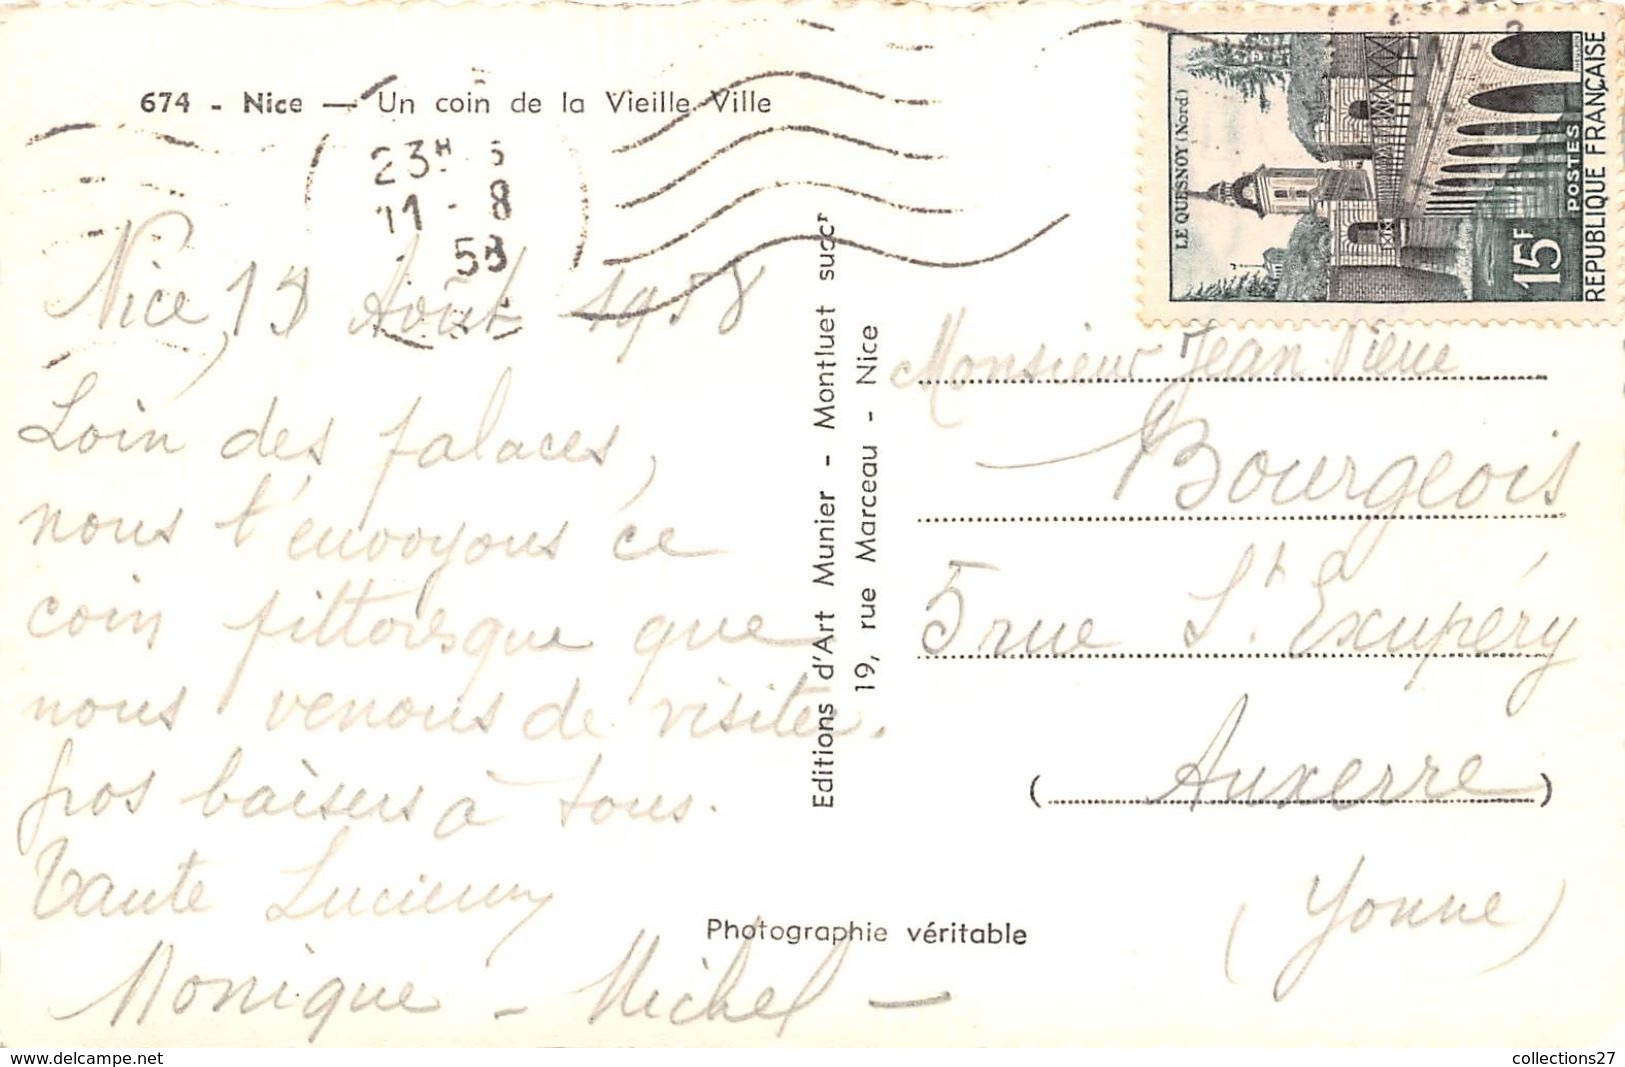 674 - Nice — Un coin de la Vieille Ville
23H
11 - 8
58
LE QUESNOY (Nord)
POSTES
15F
REPUBLIQUE FRANÇAISE
Nice, Août 1958
Loin des palaces,
nous t'envoyons ce
coin pittoresque que
nous venons de visiter.
gros baisers à tous.
Tante Lucienne
Monique - Michel -
Editions d'Art Munier - Montluet succr
19, rue Marceau - Nice
Monsieur Jean Pierre
Bourgeois
5 rue St. Exupéry
( Auxerre )
( Yonne )
Photographie véritable
www.delcampe.net
collections27